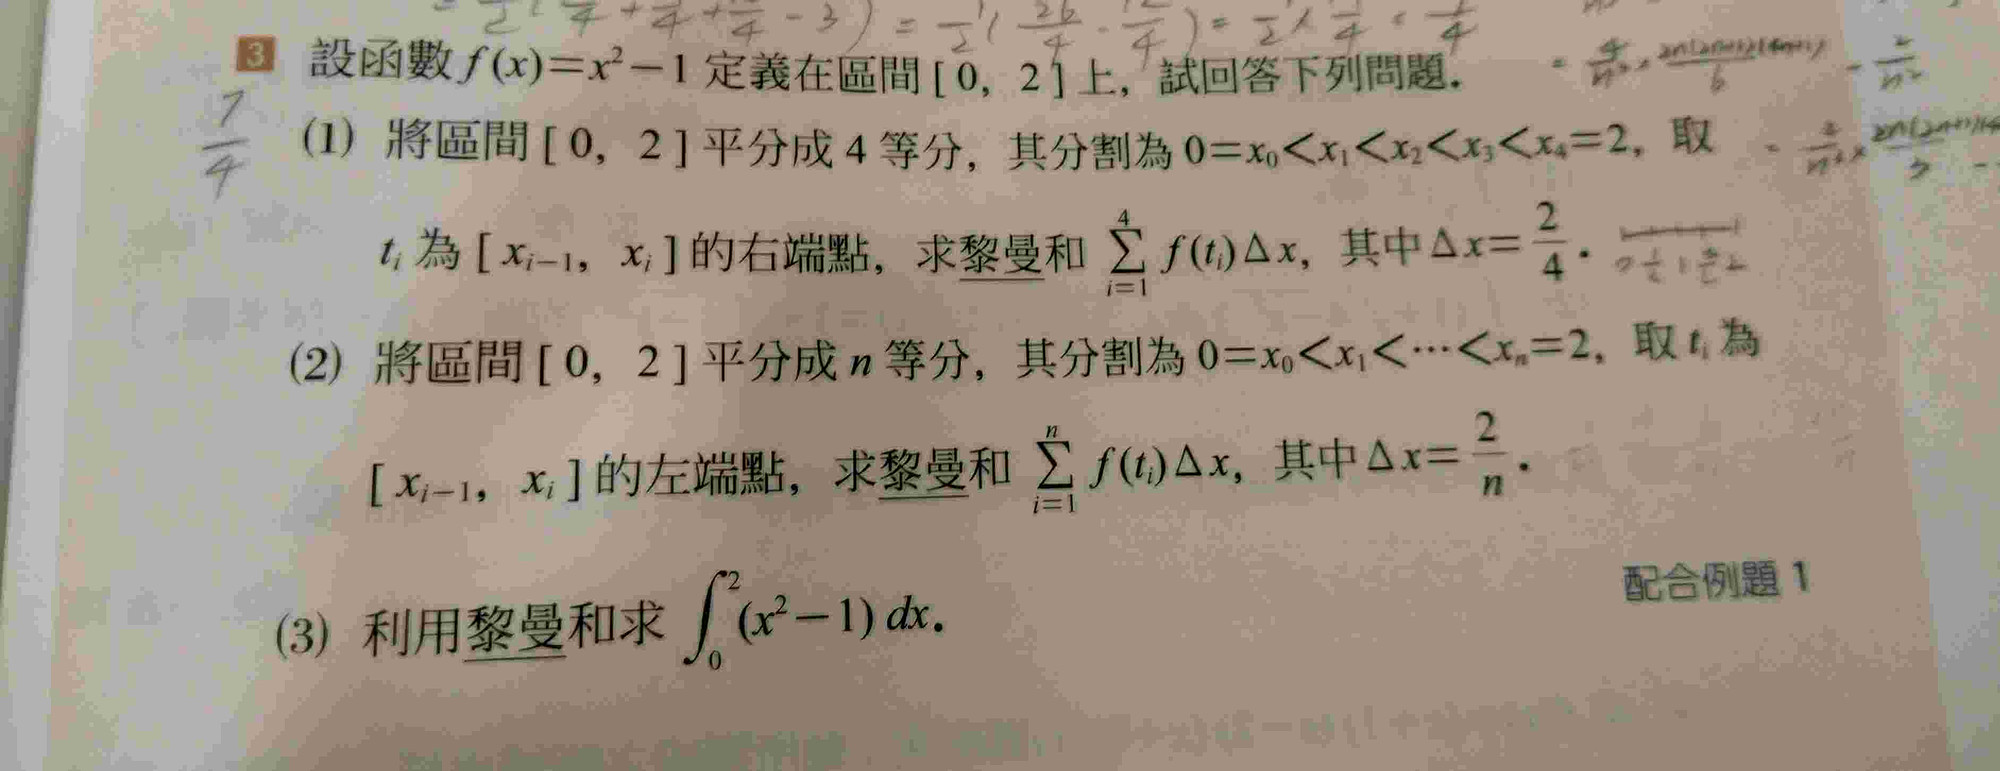 3 設函數 f(x)=x²−1 定義在區間[0, 2]上, 試回答下列問題.
7/4
(1) 將區間[0, 2]平分成 4 等分, 其分割為 0=x₀<x₁<x₂<x₃<x₄=2, 取
tᵢ 為[xᵢ₋₁, xᵢ]的右端點, 求黎曼和 ∑_{i=1}^{4} f(tᵢ)Δx, 其中 Δx=2/4.
(2) 將區間[0, 2]平分成 n 等分, 其分割為 0=x₀<x₁<⋯<xₙ=2, 取 tᵢ 為
[xᵢ₋₁, xᵢ]的左端點, 求黎曼和 ∑_{i=1}^{n} f(tᵢ)Δx, 其中 Δx=2/n.
配合例題 1
(3) 利用黎曼和求 ∫₀² (x²−1) dx.